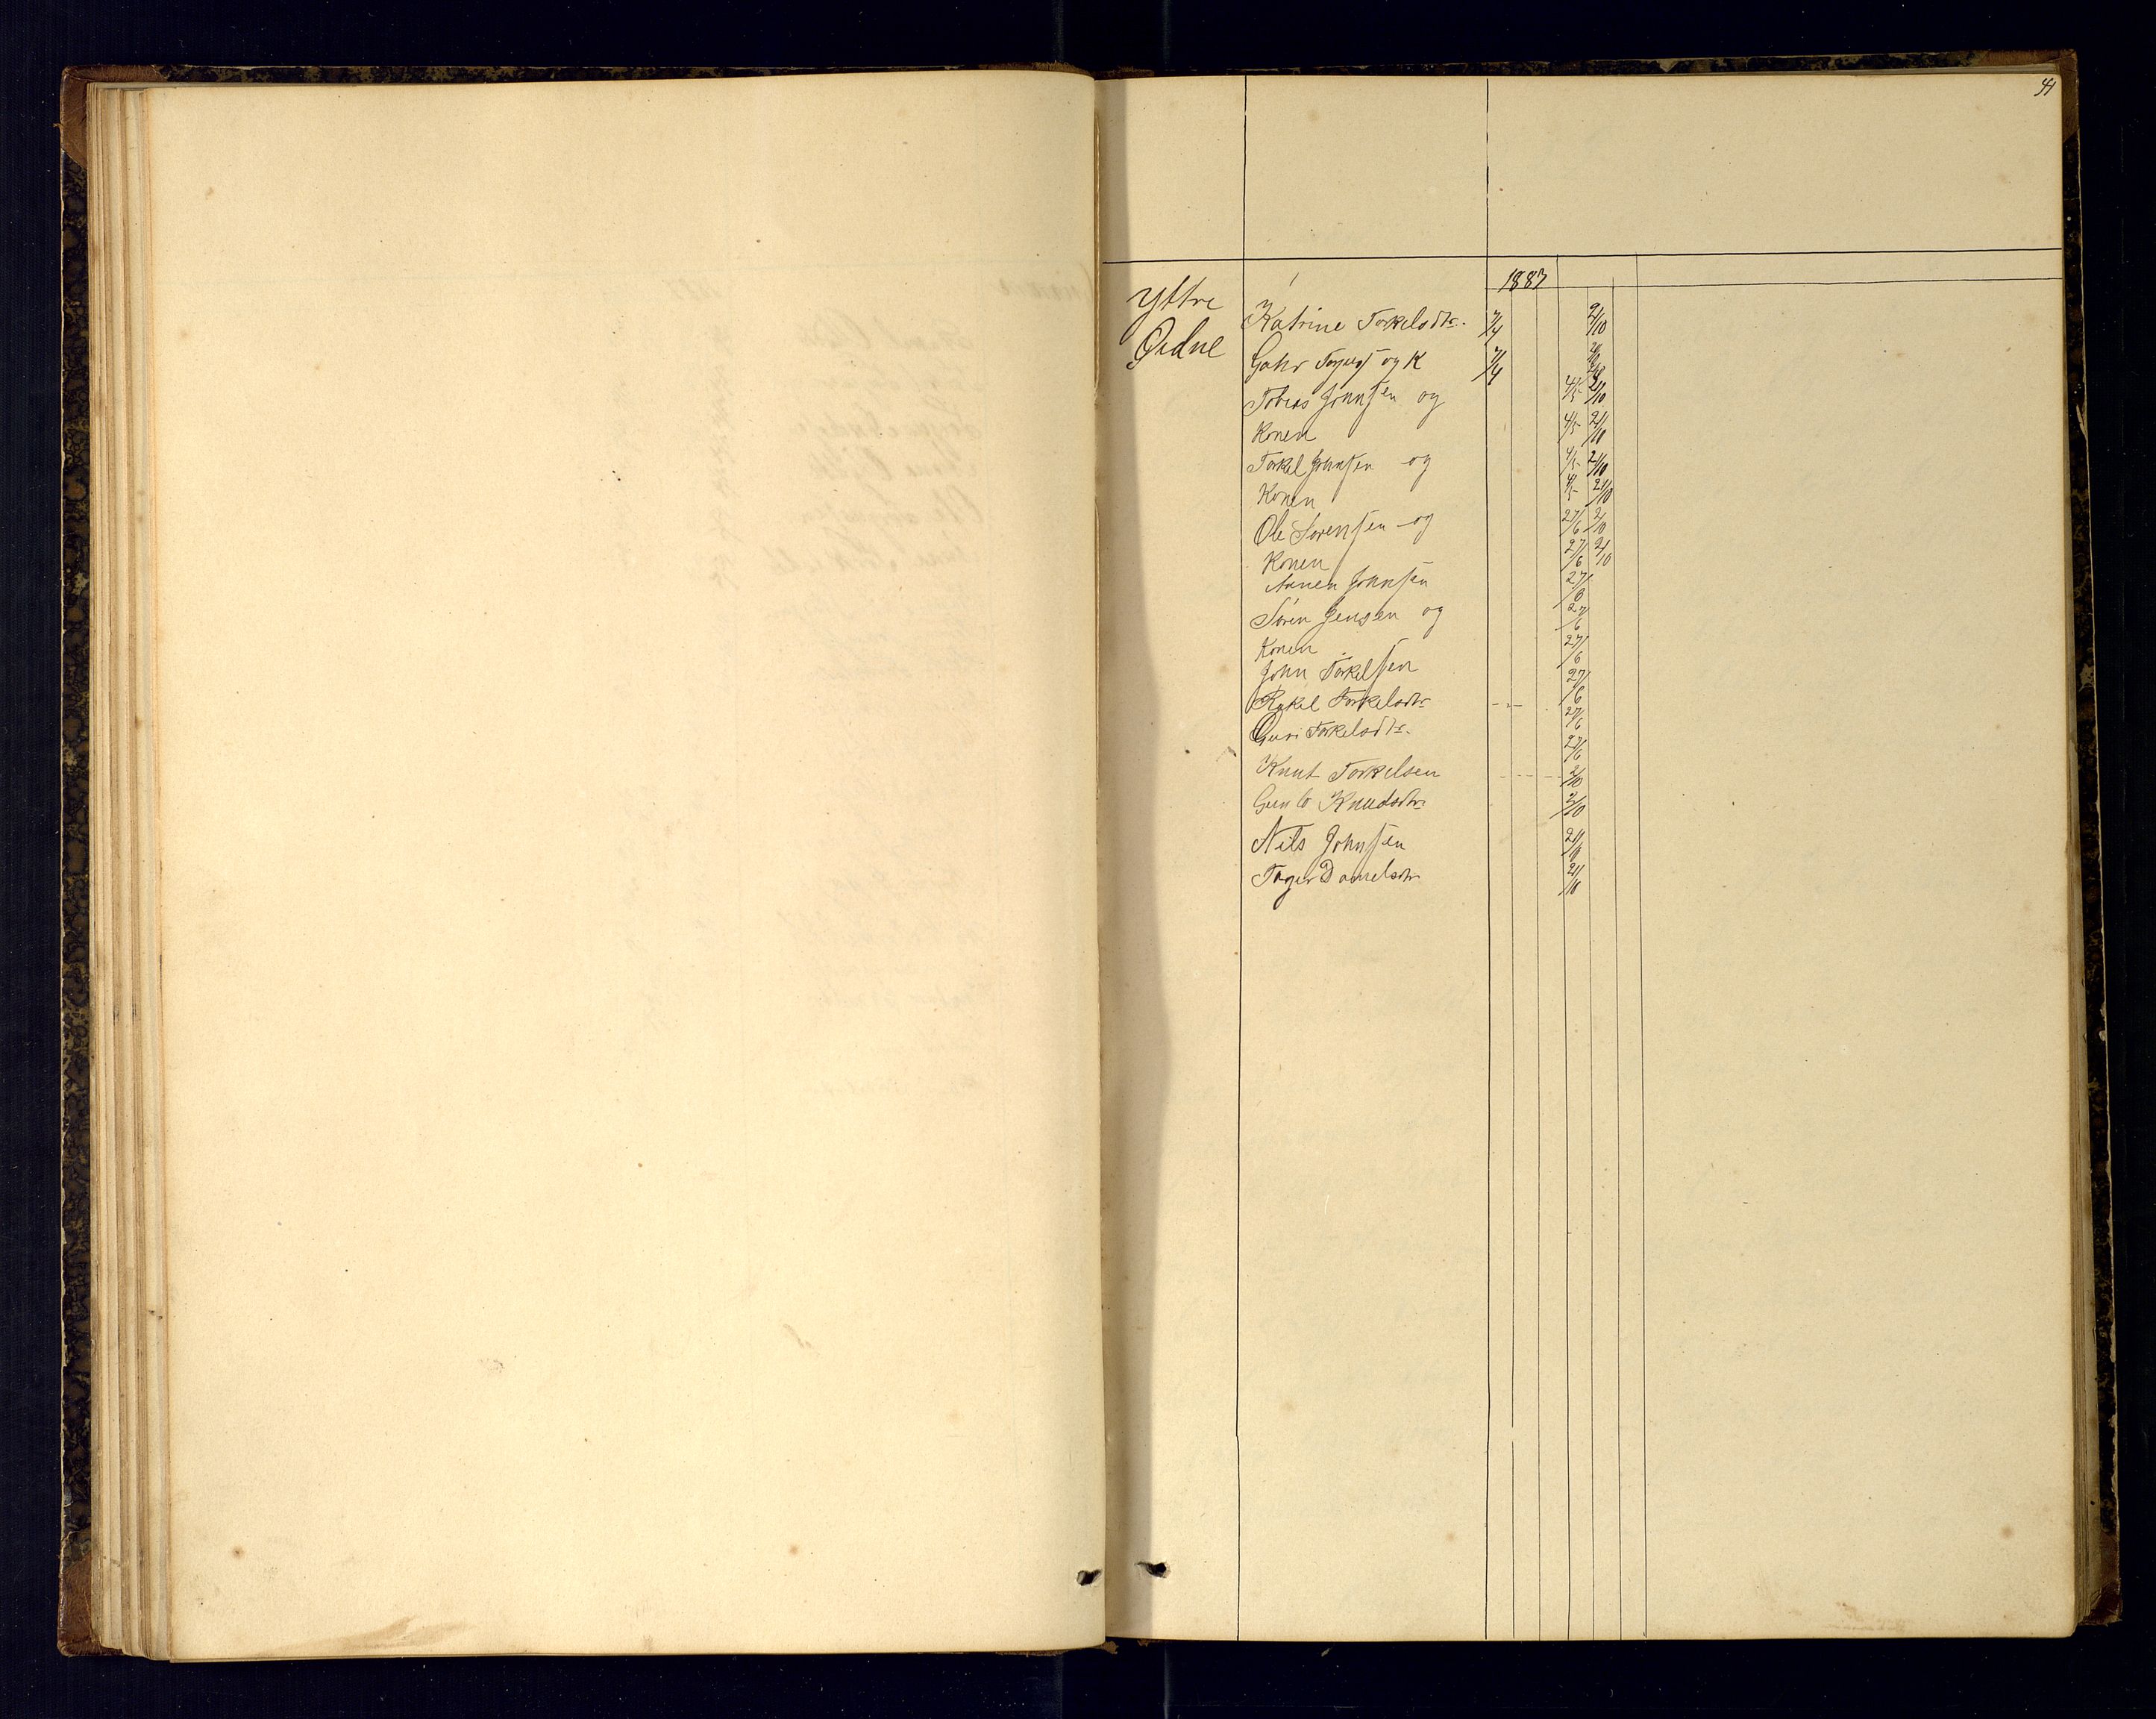 41
1887
Yttre Katrine Torkelsdtr. 7/4 2/10
Øidne
og K 7/4
Tobias Johnsen og 4/5 2/10
Konen 4/5 2/10
Torkel Johnsen og 4/5 2/10
Konen 4/5 2/10
Ole Sørensen og 27/6 2/10
Konen 27/6 2/10
Johnsen 27/6
Søren Jensen og 27/6
Konen 27/6
John Torkelsen 27/6
Rakel Torkelsdtr 27/6
Guri Torkelsdtr. 27/6
Knut Torkelsen 2/10
Knudsdtr 2/10
Nils Johnsen 2/10
Danielsdtr 2/10